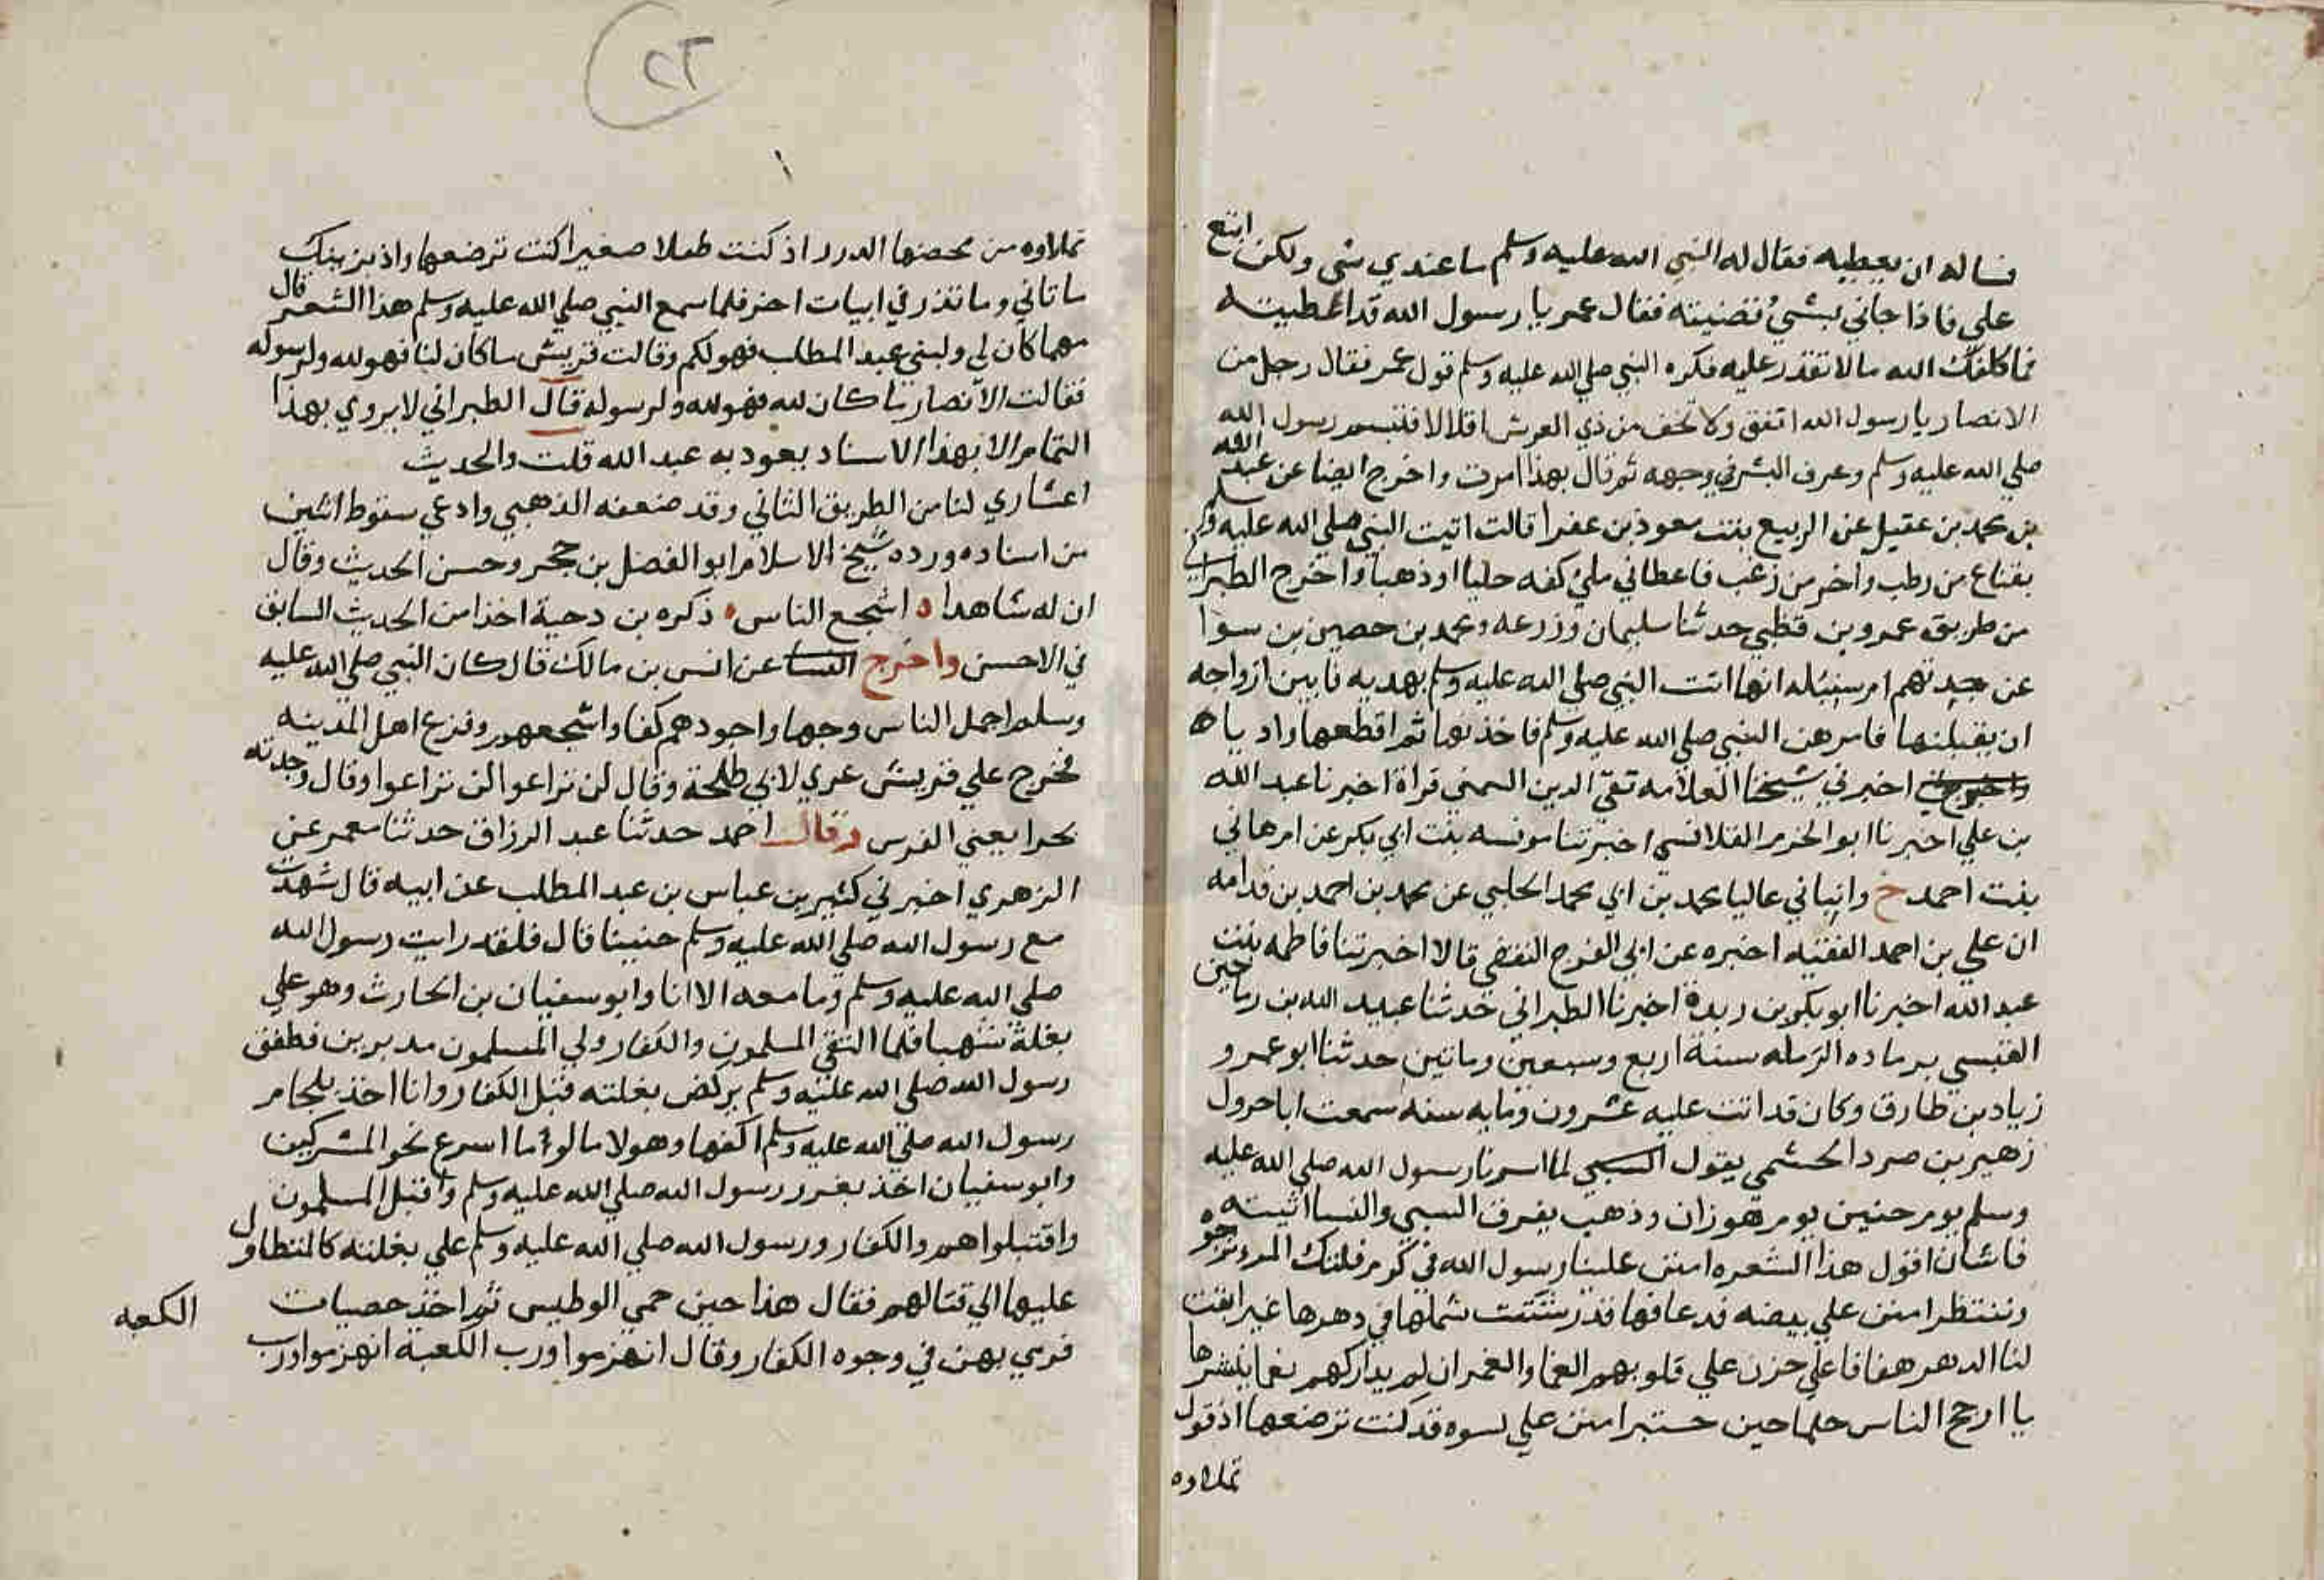 فساله ان يعطيه فقال له النبي صلى الله عليه وسلم ما عندي شي ولكن ابتع
علي فاذا جاني بشي قضيته فقال عمر يا رسول الله قد اعطيته
فما كلفك الله مالا تقدر عليه فكره النبي صلي الله عليه وسلم قول عمر فقال رجل من
الانصار يا رسول الله انفق ولا تخف من ذي العرش اقلالا فتبسم رسول الله
صلي الله عليه وسلم وعرف البشر في وجهه ثم قال بهذا امرت واخرج ايضا عن عبد الله
بن محمد بن عقيل عن الربيع بنت معوذ بن عفرا قالت اتيت النبي صلي الله عليه وسلم
بقناع من رطب واخر من زغب فاعطاني ملئ كفه حليا او ذهبا واخرج الطبراني
من طريق عمرو بن قظي حدثنا سليمان وزرعه ومحمد بن حصين بن سوا
عن جدتهم ام سنبله انها اتت النبي صلي الله عليه وسلم بهديه فابين ازواجه
ان يقبلنها فامرهن النبي صلي الله عليه وسلم فاخذنها ثم اقطعها واديا ه
اخبرني شيخنا العلامه تقي الدين السمني قراة اخبرنا عبد الله
بن علي اخبرنا ابو الحزم القلانسي اخبرتنا مونسه بنت ابي بكر عن ام هاني
بنت احمد ح وانباني عاليا محمد بن ابي محمد الحلبي عن محمد بن احمد بن قدامه
ان علي بن احمد الفقيه اخبره عن ابي الفرج الثقفي قالا اخبرتنا فاطمه بنت
عبد الله اخبرنا ابو بكر بن ريدة اخبرنا الطبراني حدثنا عبيد الله بن رماحين
القيسي برماده الرمله سنة اربع وسبعين وماتين حدثنا ابو عمرو
زياد بن طارق وكان قد اتت عليه عشرون ومايه سنه سمعت ابا جرول
زهير بن صرد الجشمي يقول لما اسرنا رسول الله صلي الله عليه
وسلم يوم حنين يوم هوزان وذهب يفرق السبي والنسا اتيته
فانشان اقول هذا الشعر ه امنن علينا رسول الله في كرم فانك المرء نرجوه
وننتظر امنن علي بيضه قد عاقها قدر شتتت شملها في دهرها غير ابقت
لنا الدهر هفافا علي حزن علي قلوبهم الغما والغمر ان لم يداركهم نعما ينشرها
يا ارجح الناس حلما حين ختبر امنن علي نسوه قد كنت ترضعها اذ قول
تملاوه
٢٣
تملاوه من محضها الدرر اذ كنت طفلا صغيرا كنت ترضعها واذ يزينك
ما تاتي وما تذر في ابيات اخر فلما سمع النبي صلي الله عليه وسلم هذا الشعر قال
مهما كان لي ولبني عبد المطلب فهو لكم وقالت قريش ما كان لنا فهو لله ولرسوله
فقالت الانصار ما كان لله فهو لله ولرسوله قال الطبراني لا يروي بهذا
التمام الا بهذا الاسناد بعود به عبد الله قلت والحديث
اعشاري لنا من الطريق الثاني وقد ضعفه الذهبي وادعي سقوط اثنين
من اسناده ورده شيخ الاسلام ابو الفضل بن حجر وحسن الحديث وقال
ان له شاهدا ه اشجع الناس ه ذكره بن دحية اخذا من الحديث السابق
في الاحسن واخرج عن انس بن مالك قال كان النبي صلي الله عليه
وسلم اجمل الناس وجها واجودهم كفا واشجعهم وفزع اهل المدينه
فخرج علي فريش عري لابي طلحة وقال لن تراعوا لن تراعوا وقال وجدته
بحرا يعني الفرس وقال احمد حدثنا عبد الرزاق حدثنا معمر عن
الزهري اخبرني كثير بن عباس بن عبد المطلب عن ابيه قال شهدت
مع رسول الله صلي الله عليه وسلم حنينا قال فلقد رايت رسول الله
صلي الله عليه وسلم وما معه الا انا وابو سفيان بن الحارث وهو علي
بغلة شهبا فلما التقي المسلمون والكفار ولي المسلمون مدبرين فطفق
رسول الله صلي الله عليه وسلم يركض بغلته قبل الكفار وانا اخذ بلجام
رسول الله صلي الله عليه وسلم اكفها وهو لا يالو ما اسرع نحو المشركين
وابو سفيان اخذ بغرز رسول الله صلي الله عليه وسلم واقبل المسلمون
واقتتلوا هم والكفار ورسول الله صلي الله عليه وسلم علي بغلته كالمتطاول
عليها الي قتالهم فقال هذا حين حمي الوطيس ثم اخذ حصيات
فرمي بهن في وجوه الكفار وقال انهزموا ورب الكعبة انهزموا ورب
الكعبه